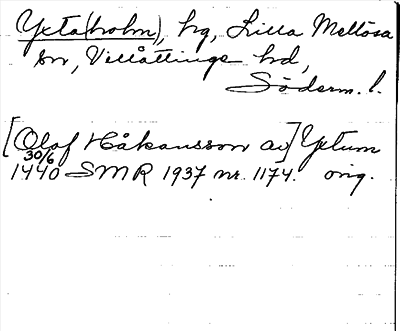 Yxta(holm), hg, Lilla Mellösa
sn, Villåttinge hd,
Söderm. l.
[Olof Håkansson av] Yxtum
30/6
1440 SMR 1937 nr. 1174. orig.